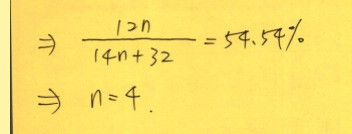 ⇒ 12n / 14n+32 = 54.54%
⇒ n=4.